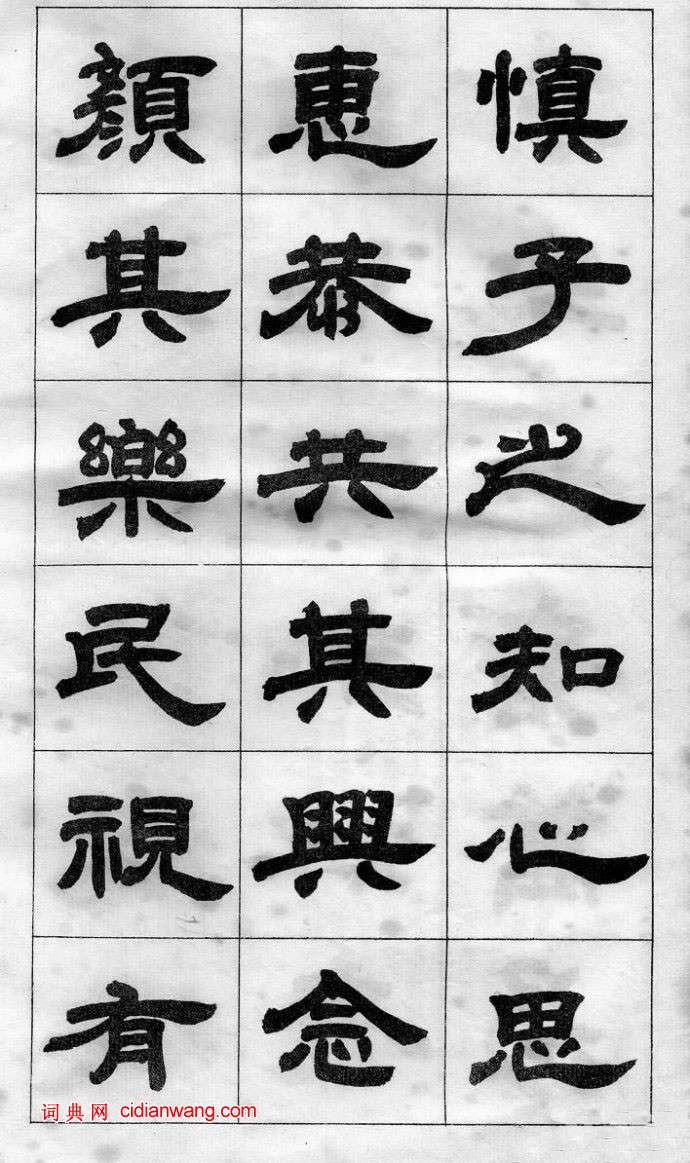 慎子之知心思
惠恭共其興念
顏其樂民視有
词典网 cidianwang.com